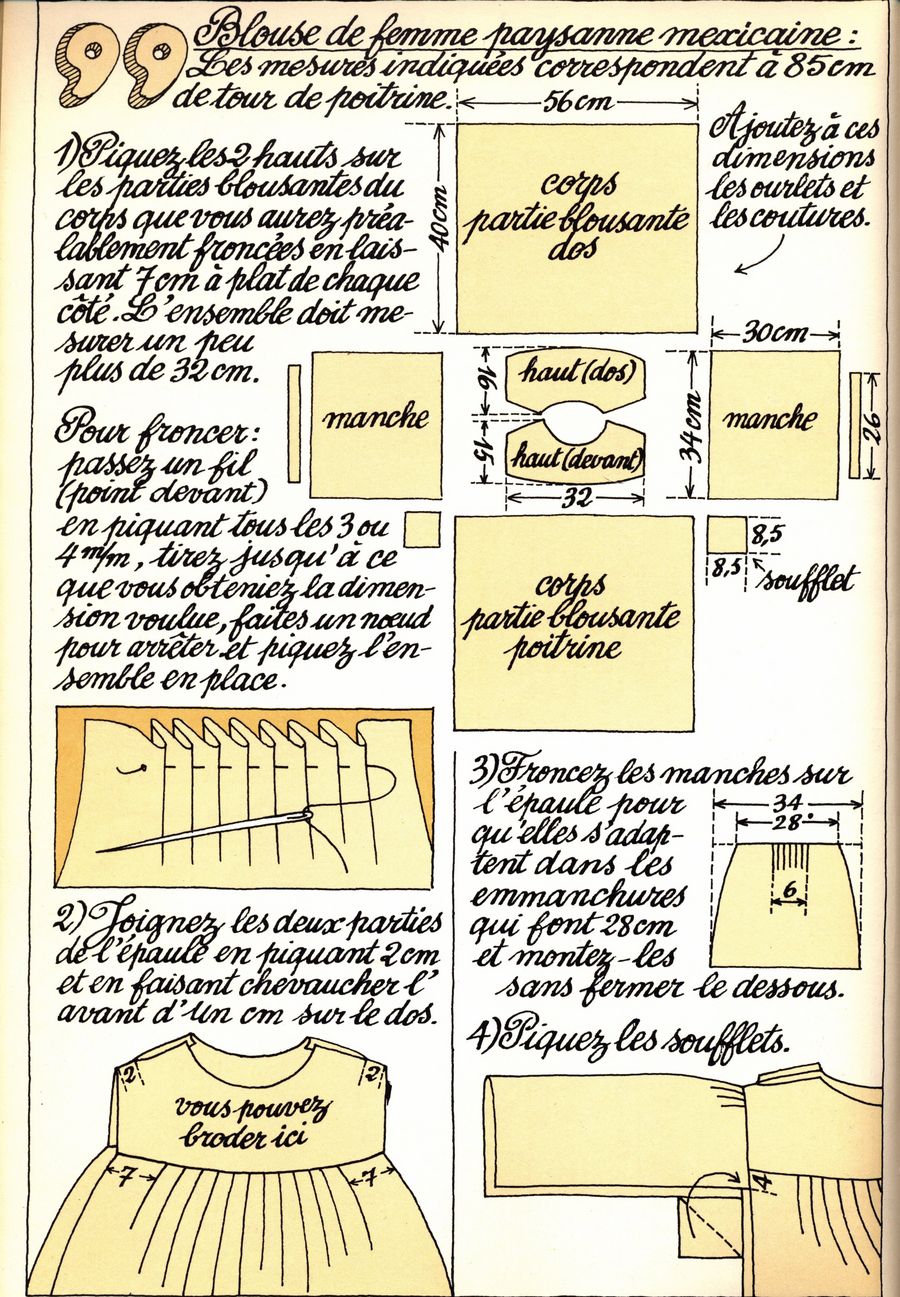 99 Blouse de femme paysanne mexicaine :
Les mesures indiquées correspondent à 85 cm
de tour de poitrine.
56 cm
40 cm
corps
partie blousante
dos
Ajoutez à ces
dimensions
les ourlets et
les coutures.
1) Piquez les 2 hauts sur
les parties blousantes du
corps que vous aurez préa-
lablement froncées en lais-
sant 7 cm à plat de chaque
côté. L'ensemble doit me-
surer un peu
plus de 32 cm.
manche
haut (dos)
16
15
haut (devant)
32
30 cm
34 cm
manche
26
Pour froncer :
passez un fil
(point devant)
en piquant tous les 3 ou
4 m/m, tirez jusqu'à ce
que vous obteniez la dimen-
sion voulue, faites un nœud
pour arrêter et piquez l'en-
semble en place.
corps
partie blousante
poitrine
8,5
8,5
soufflet
2) Joignez les deux parties
de l'épaule en piquant 2 cm
et en faisant chevaucher l'
avant d'un cm sur le dos.
2
2
vous pouvez
broder ici
7
7
3) Froncez les manches sur
l'épaule pour
qu'elles s'adap-
tent dans les
emmanchures
qui font 28 cm
et montez-les
sans fermer le dessous.
34
28
6
4) Piquez les soufflets.
4